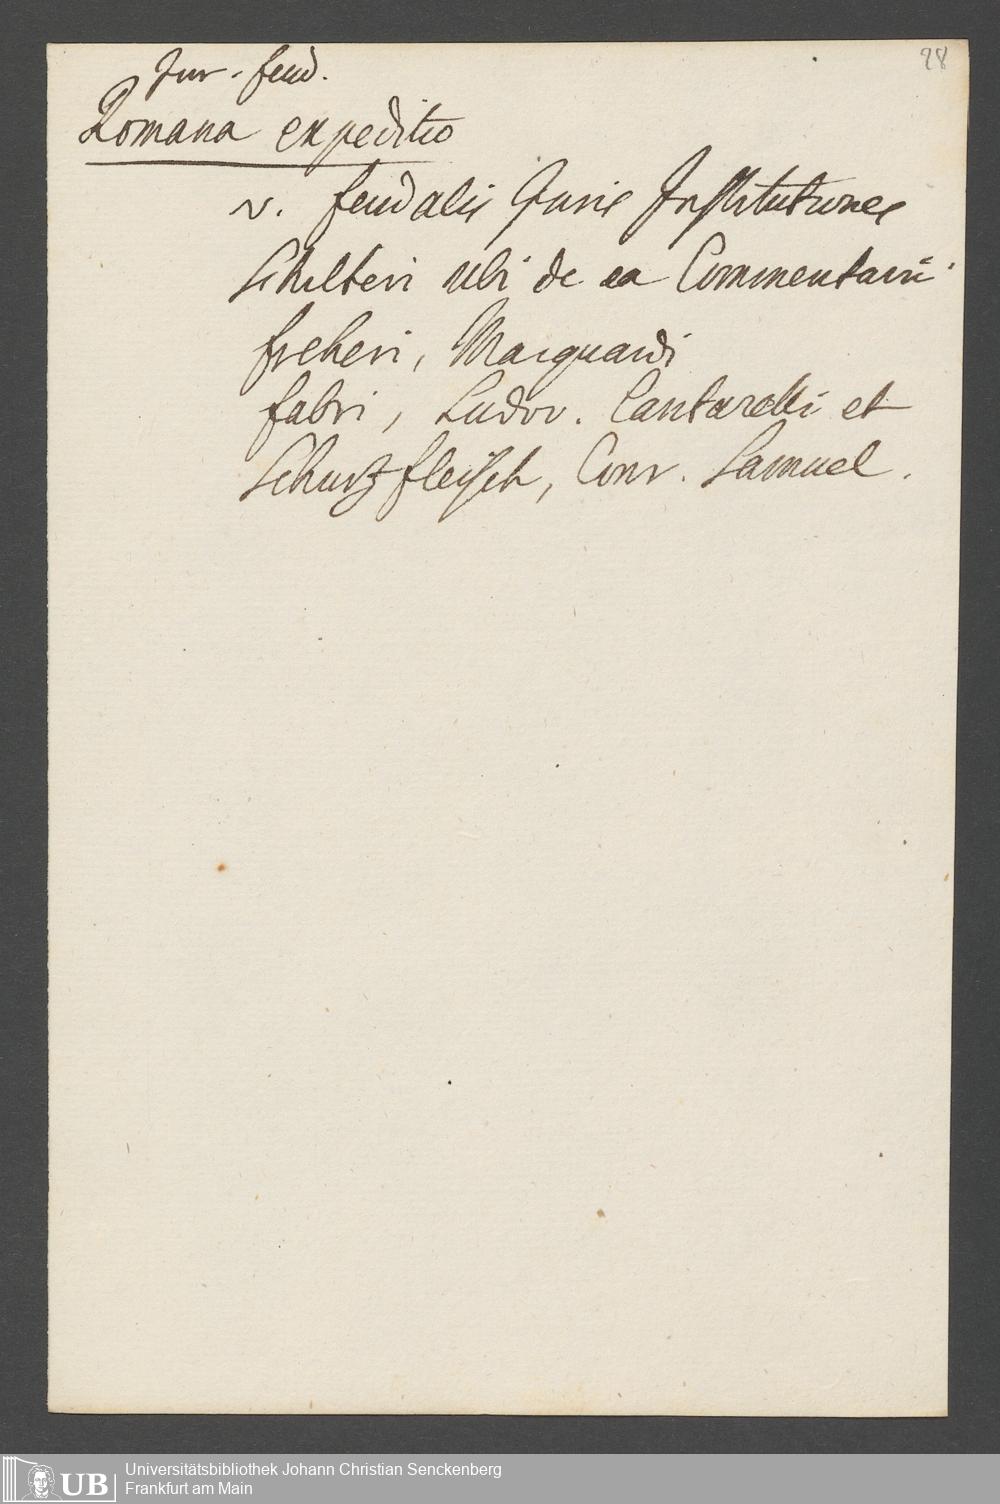 28
Jur. feud.
Romana expeditio
v. feudalis Juris Institutiones
Schilteri ubi de ea Commentarii
freheri, Marquardi
fabri, Ludov. Cantarelli et
Schurzfleisch, Conr. Samuel.
UB Universitätsbibliothek Johann Christian Senckenberg
Frankfurt am Main